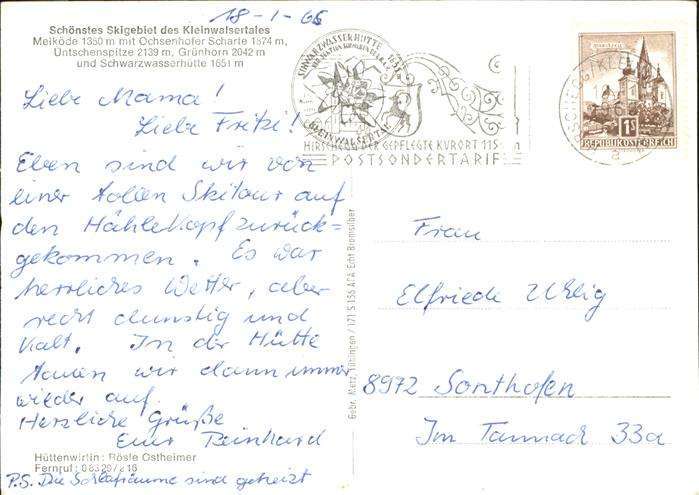 18-1-66
Schönstes Skigebiet des Kleinwalsertales
Melköde 1350 m mit Ochsenhofer Scharte 1874 m,
Üntschenspitze 2139 m, Grünhorn 2042 m
und Schwarzwasserhütte 1651 m
Liebe Mama!
Liebe Fritzi!
Eben sind wir von
einer tollen Skitour auf
den Hählekopf zurück=
gekommen. Es war
herrliches Wetter, aber
recht dunstig und
kalt. In der Hütte
tauen wir dann immer
wieder auf.
Herzliche Grüße
Euer Reinhard
Hüttenwirtin: Rösle Ostheimer
Fernruf:
P.S. Die Schlafräume sind geheizt
Gebr. Metz, Tübingen / 171 S 156 AFA Echt Bromsilber
SCHWARZWASSERHÜTTE
KLEINWALSERTAL
HIRSCHEGG DER GEPFLEGTE KURORT 115
POSTSONDERTARIF
1S
REPUBLIK ÖSTERREICH
Frau
Elfriede Uhlig
8972 Sonthofen
Im Tannach 33a